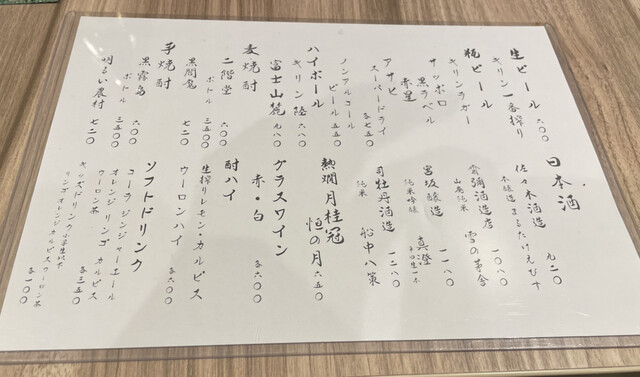 生ビール 六〇〇
キリン一番搾り
瓶ビール
キリンラガー
サッポロ
黒ラベル
赤星
アサヒ
スーパードライ
各七五〇
ノンアルコール
ビール 五五〇
ハイボール
キリン陸 六八〇
富士山麓 九八〇
麦焼酎
二階堂 六〇〇
ボトル 三五〇〇
黒閻魔 七二〇
芋焼酎
黒霧島 六〇〇
ボトル 三五〇〇
明るい農村 七二〇
日本酒
佐々木酒造 九二〇
本醸造 まるたけえびす
齋彌酒造店 一〇八〇
山廃純米 雪の茅舎
宮坂醸造 一一八〇
純米吟醸 真澄
司牡丹酒造 一二八〇
純米 船中八策
熱燗 月桂冠
恒の月 六五〇
グラスワイン
赤・白 各六〇〇
酎ハイ
生搾りレモン・カルピス
ウーロンハイ 各六〇〇
ソフトドリンク
コーラ ジンジャーエール
オレンジ リンゴ カルピス
ウーロン茶 各三五〇
キッズドリンク 小学生以下
リンゴ オレンジ カルピス ウーロン茶
各一〇〇